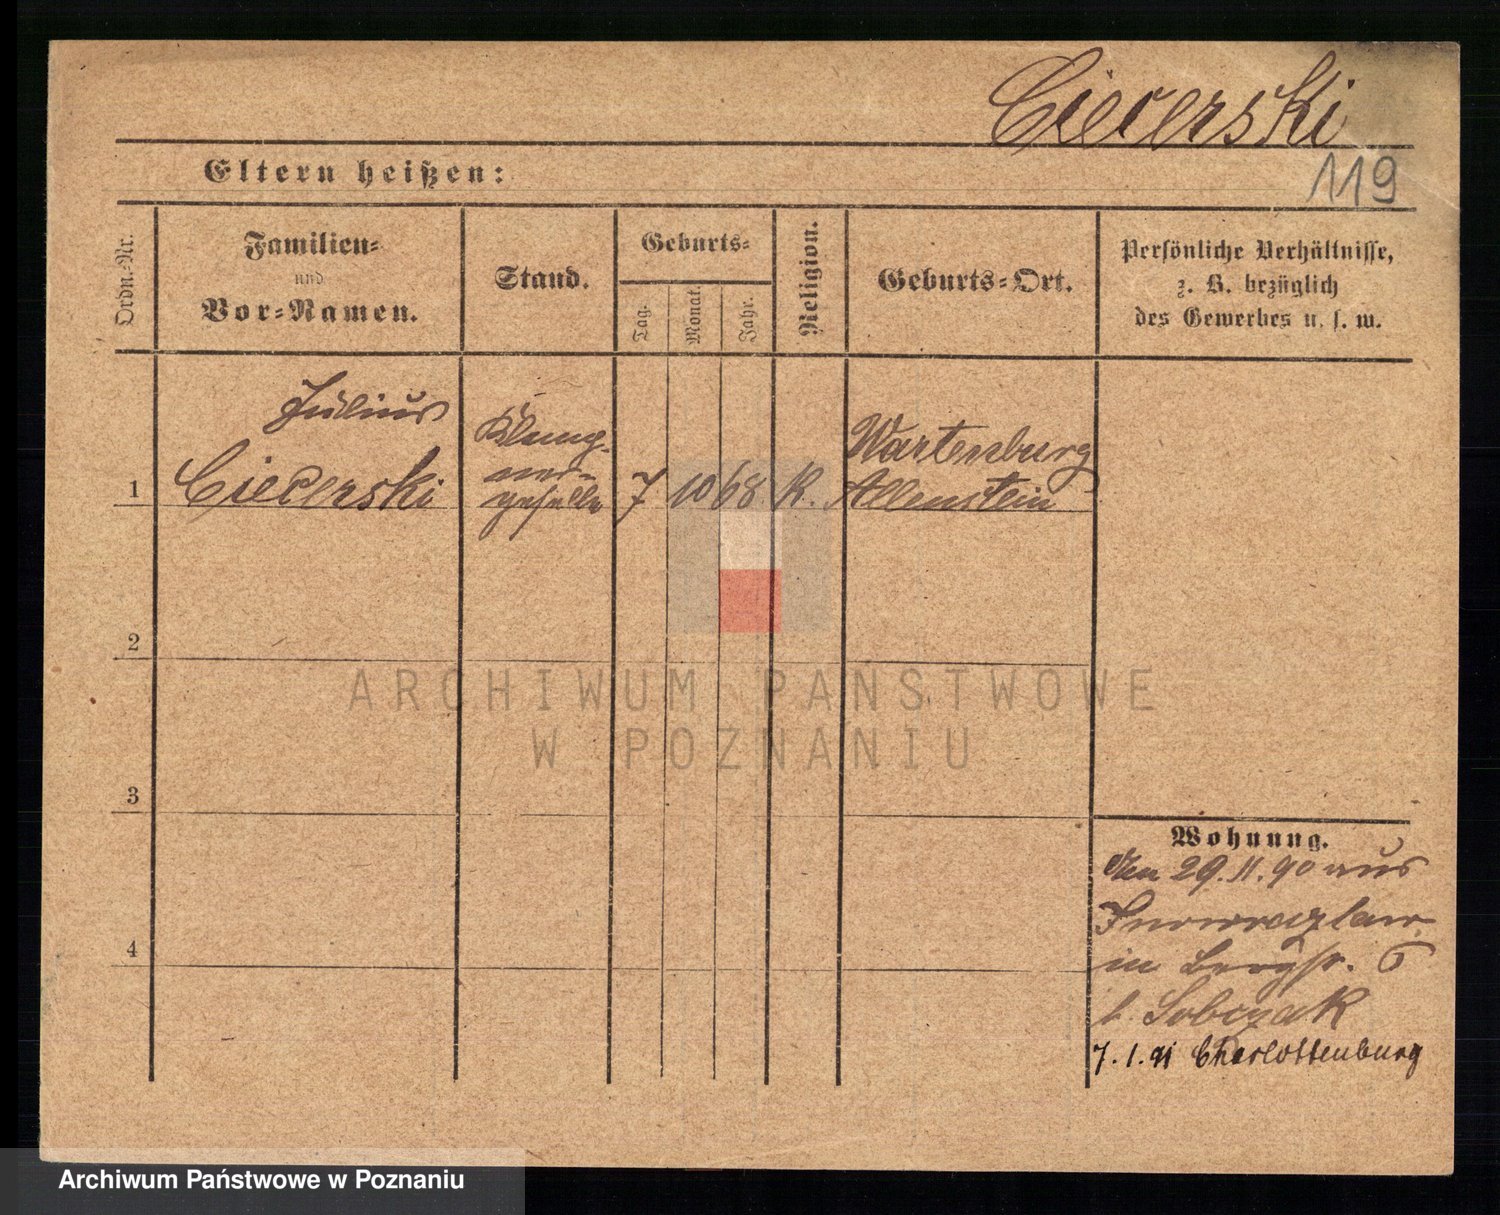 Ciecerski
119
Eltern heißen:
Ordn.-Nr.
Familien-
und
Vor-Namen.
Stand.
Geburts-
Tag.
Monat.
Jahr.
Religion.
Geburts-Ort.
Persönliche Verhältnisse,
z. B. bezüglich
des Gewerbes u. s. w.
Julius
Klemp-
ner-
Wartenburg
1 Ciecerski geselle 7 10 68 K. Allenstein
2
ARCHIWUM PAŃSTWOWE
W POZNANIU
3
Wohnung.
Den 29.11.90 aus
Inowrazlaw
4
in Bergstr. 6
b. Sobczak
7.1.91 Charlottenburg
Archiwum Państwowe w Poznaniu